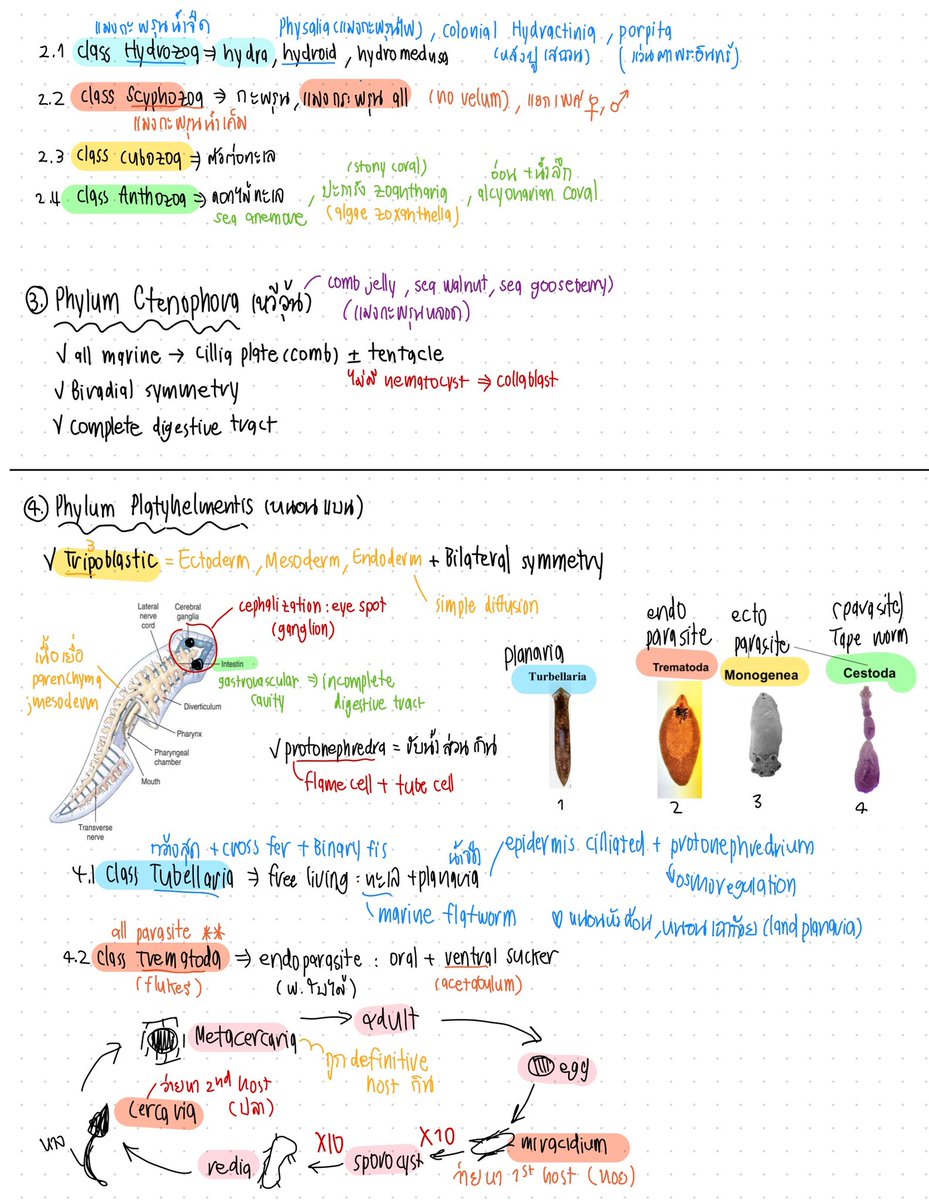 แมงกะพรุนน้ำจืด
Physalia (แมงกะพรุนไฟ), colonial Hydractinia, porpita
2.1 class Hydrozoa ⇒ hydra, hydroid, hydromedusa
(แว่นตาพระอินทร์)
2.2 class Scyphozoa ⇒ กะพรุน, แมงกะพรุน all (no velum), แยกเพศ ♀, ♂
แมงกะพรุนน้ำเค็ม
2.3 class cubozoa ⇒ ตัวต่อทะเล
(stony coral)
อ่อน + น้ำลึก
2.4 class Anthozoa ⇒ ดอกไม้ทะเล, ปะการัง zoantharia, alcyonarian coral
sea anemone (algae zoxanthella)
comb jelly, sea walnut, sea gooseberry)
③. Phylum Ctenophora (หวีวุ้น)
(แมงกะพรุนหลอด)
√ all marine → cillia plate (comb) ± tentacle
ไม่มี nematocyst ⇒ collablast
√ Biradial symmetry
√ complete digestive tract
④. Phylum Platyhelmentis (หนอนแบน)
3
√ Tripoblastic = Ectoderm, Mesoderm, Endoderm + Bilateral symmetry
simple diffusion
Lateral nerve cord
Cerebral ganglia
cephalization : eye spot
(ganglion)
เนื้อเยื่อ
parenchyma
; mesoderm
Intestin
gastrovascular cavity ⇒ incomplete digestive tract
Diverticulum
Pharynx
Pharyngeal chamber
Mouth
Transverse nerve
√ protonephredra = ขับน้ำส่วนเกิน
flame cell + tube cell
planaria
Turbellaria
1
endo parasite
Trematoda
2
ecto parasite
Monogenea
3
(parasite)
Tape worm
Cestoda
4
+ cross fer + Binary fis
น้ำจืด
epidermis ciliated + protonephredrium
4.1 class Tubellaria ⇒ free living : ทะเล + planaria
osmoregulation
marine flatworm
(land planaria)
all parasite **
4.2 class Trematoda ⇒ endoparasite : oral + ventral sucker
(flukes) (พ.ใบไม้) (acetabulum)
adult
Metacercaria
ถูก definitive host กิน
egg
ว่ายหา 2nd host
(ปลา)
cercaria
หาง
miracidium
X10
X10
sporocyst
redia
ว่ายหา 1st host (หอย)